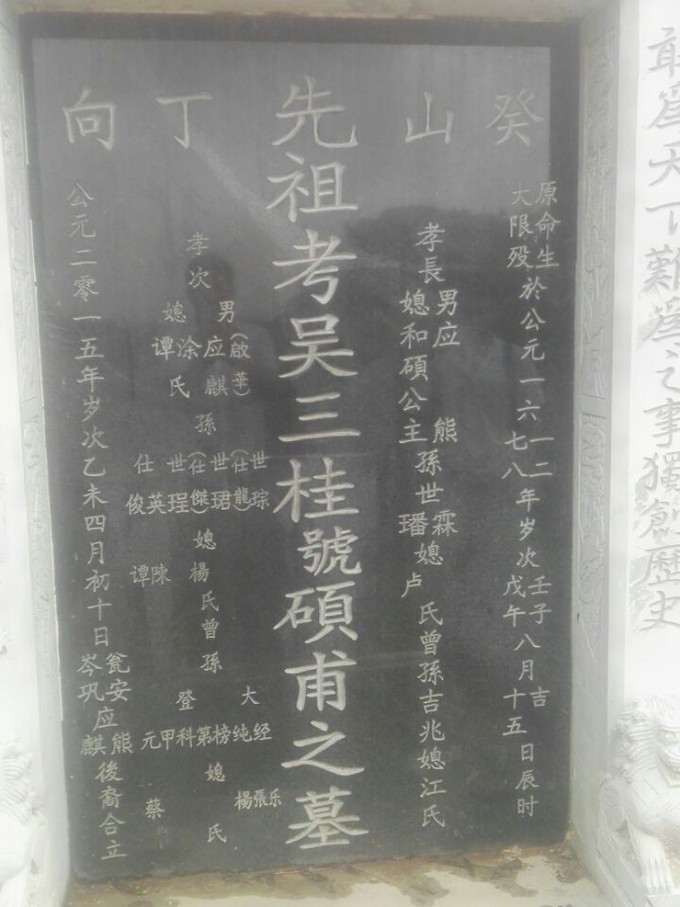 敢為天下難為之事獨創歷史
癸山丁向
原命生
大限殁
於公元一六
一二
七八
年岁次
壬子
戊午
八月
吉
十五
日辰时
孝長男应熊孫世霖
媳和碩公主
璠媳卢氏曾孫吉兆媳江氏
先祖考吴三桂號碩甫之墓
孝次男应麒(啟華)孫
媳涂氏
谭
世琮
(仕龍)
世珺
(仕傑)
世珵
仕英俊
媳楊陳谭氏曾孫
大经纯榜第科甲元
登
媳乐張楊蔡氏
公元二零一五年岁次乙未四月初十日
瓮安应熊
岑巩应麒
後裔合立